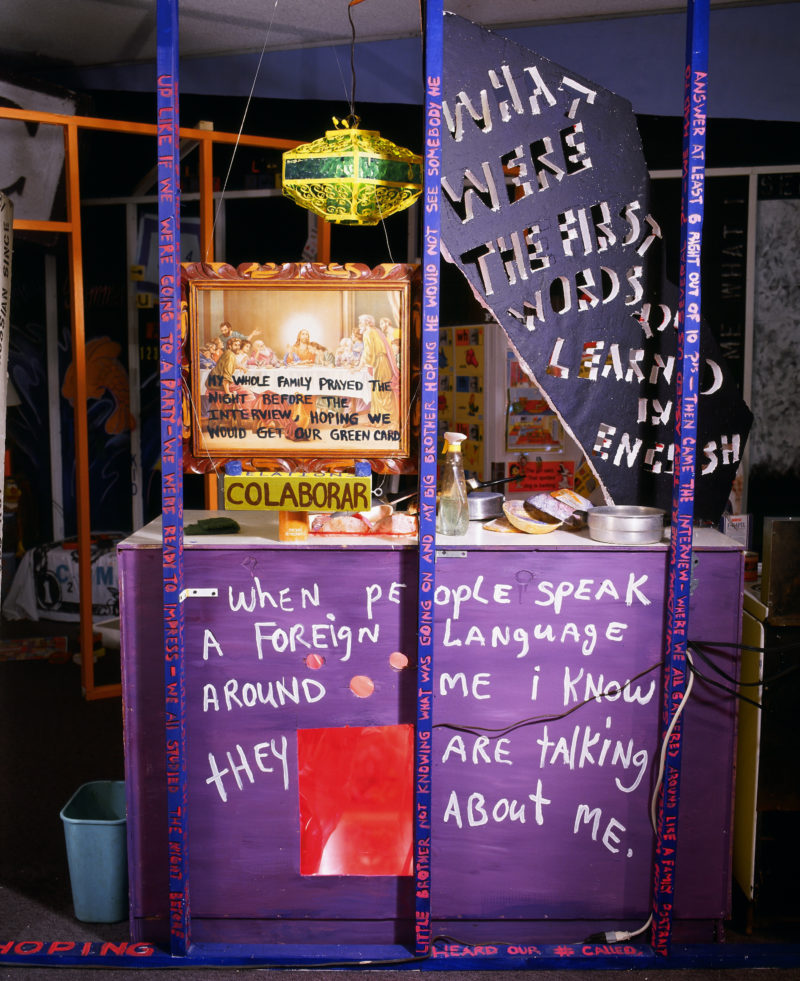 WHAT
WERE
THE FIRST
WORDS YOU
LEARNED
IN
ENGLISH
MY WHOLE FAMILY PRAYED THE
NIGHT BEFORE THE
INTERVIEW, HOPING WE
WOULD GET OUR GREEN CARD
COLABORAR
WHEN PEOPLE SPEAK
A FOREIGN LANGUAGE
AROUND ME I KNOW
THEY ARE TALKING
ABOUT ME.
UP LIKE IF WE WERE GOING TO A PARTY WE WERE READY TO IMPRESS — WE ALL STUDIED THE NIGHT BEFORE
LITTLE BROTHER NOT KNOWING WHAT WAS GOING ON AND MY BIG BROTHER HOPING HE WOULD NOT SEE SOMEBODY HE
ANSWER AT LEAST 6 RIGHT OUT OF 10 ?'s — THEN CAME THE INTERVIEW — WHERE WE ALL GATHERED AROUND LIKE A FAMILY PORTRAIT
HOPING
HEARD OUR # CALLED
ME WHAT I